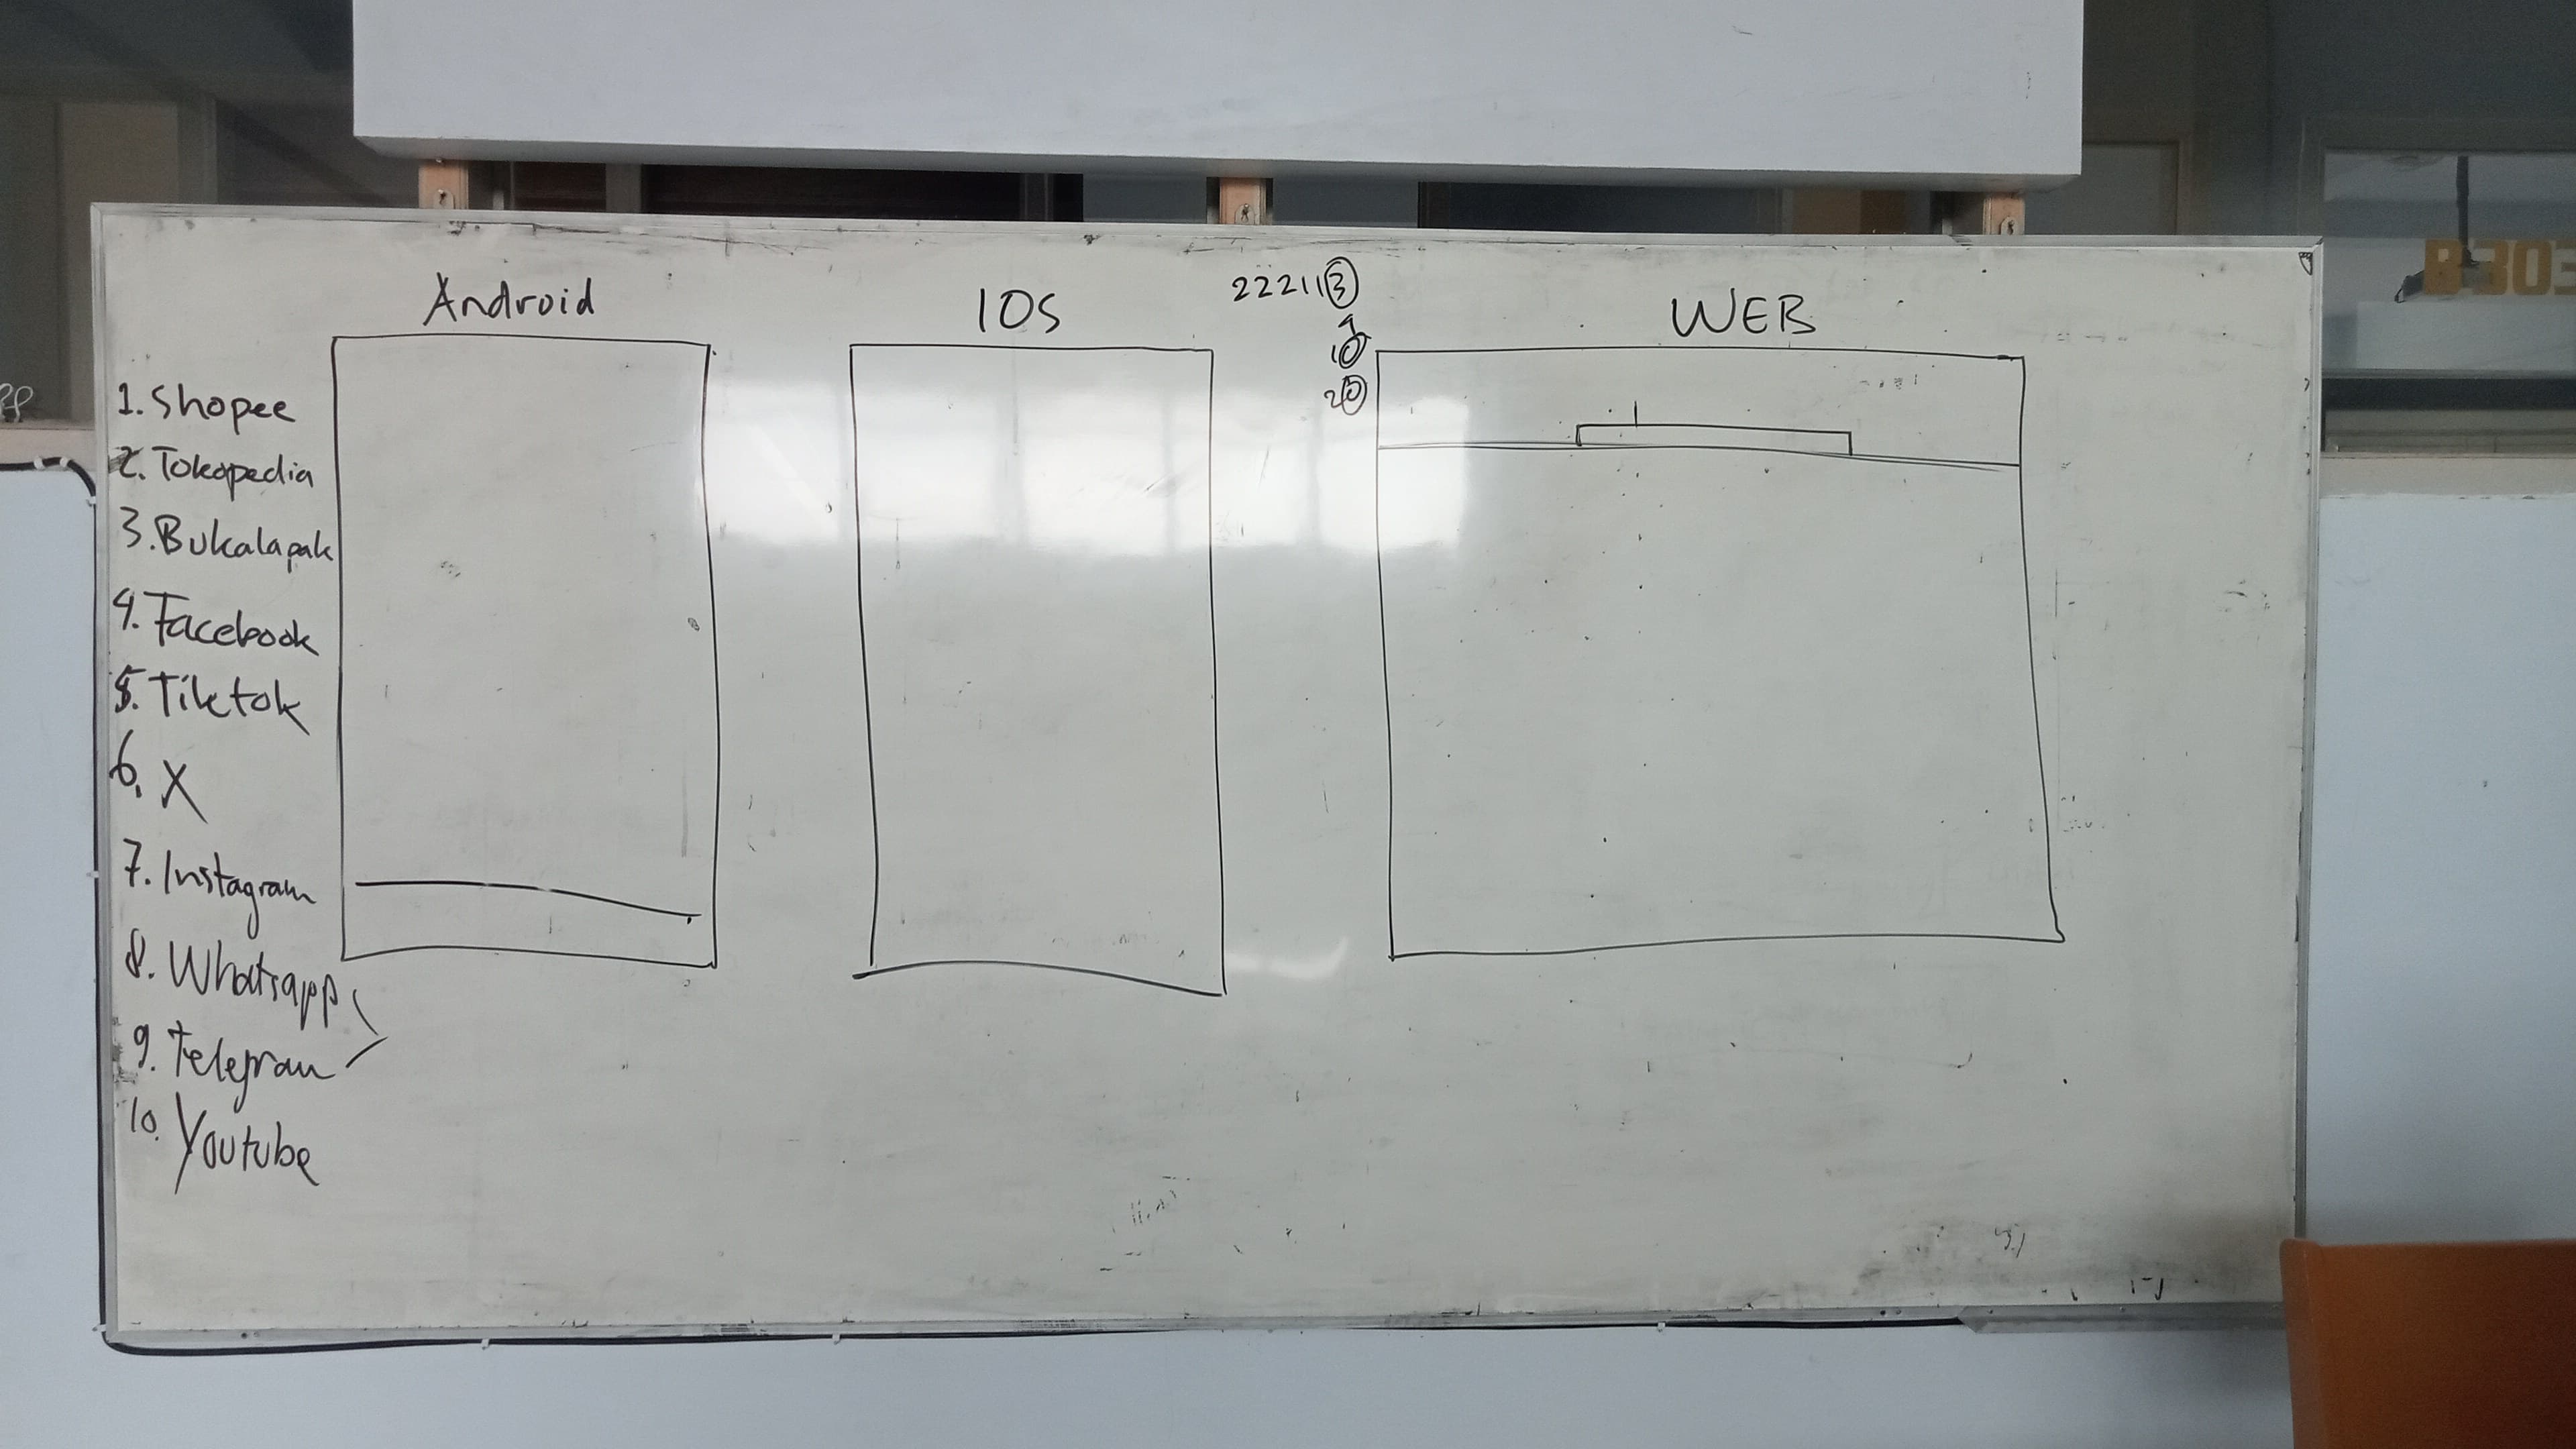 Android
IOS
WEB
222113
9
10
20
1. Shopee
2. Tokopedia
3. Bukalapak
4. Facebook
5. Tiktok
6. X
7. Instagram
8. Whatsapp
9. Telegram
10. Youtube
B 303